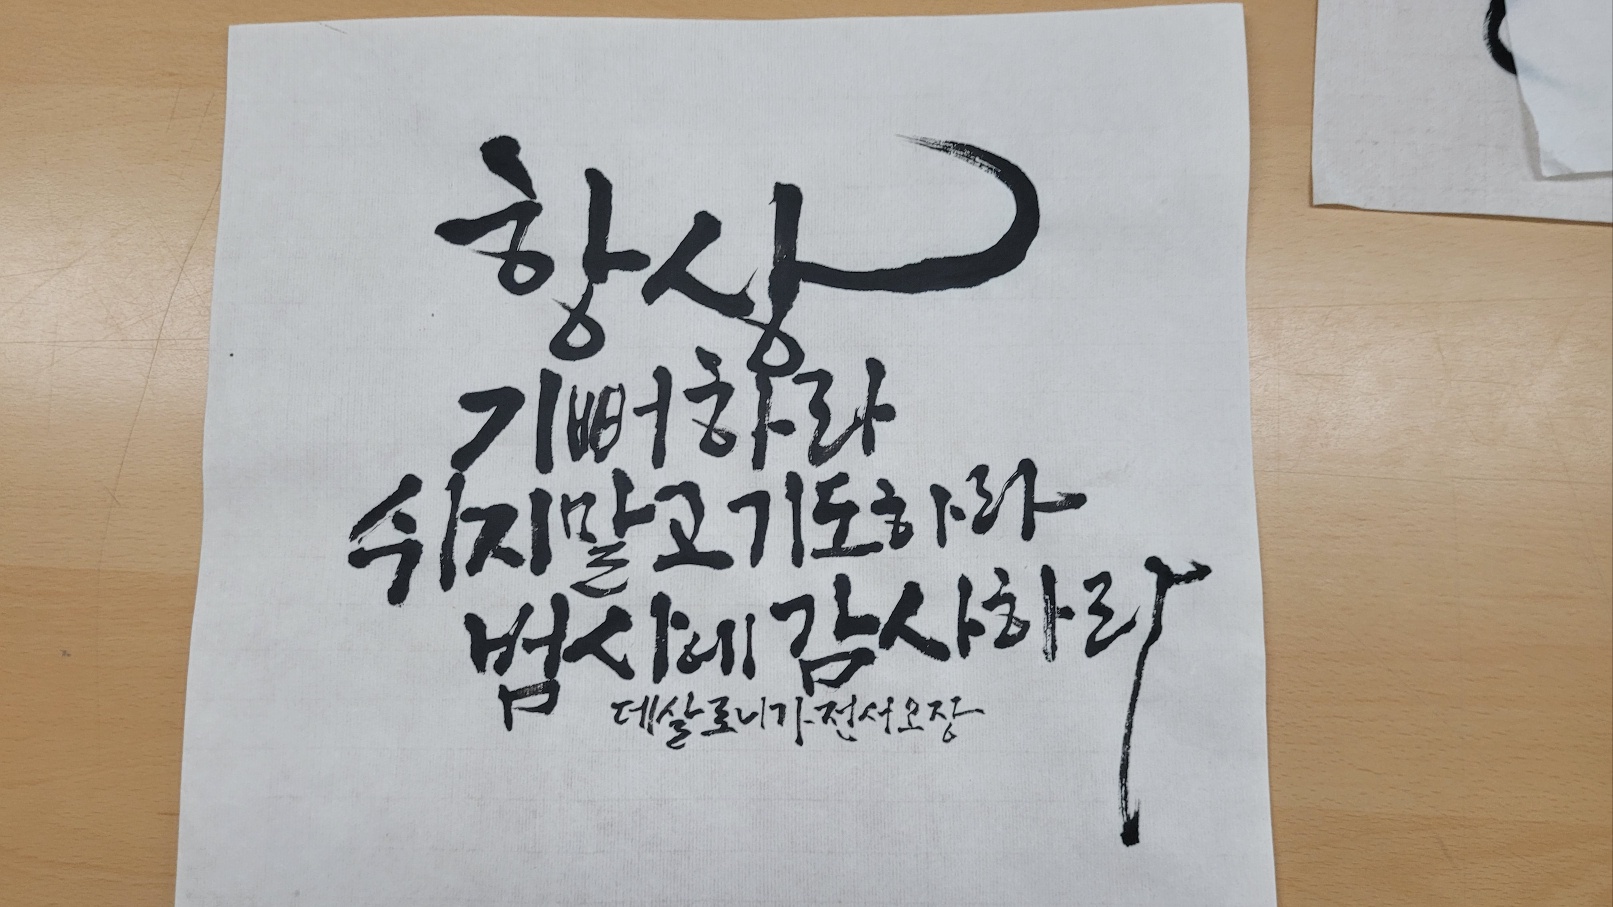 항상
기뻐하라
쉬지말고기도하라
범사에 감사하라
데살로니가전서오장